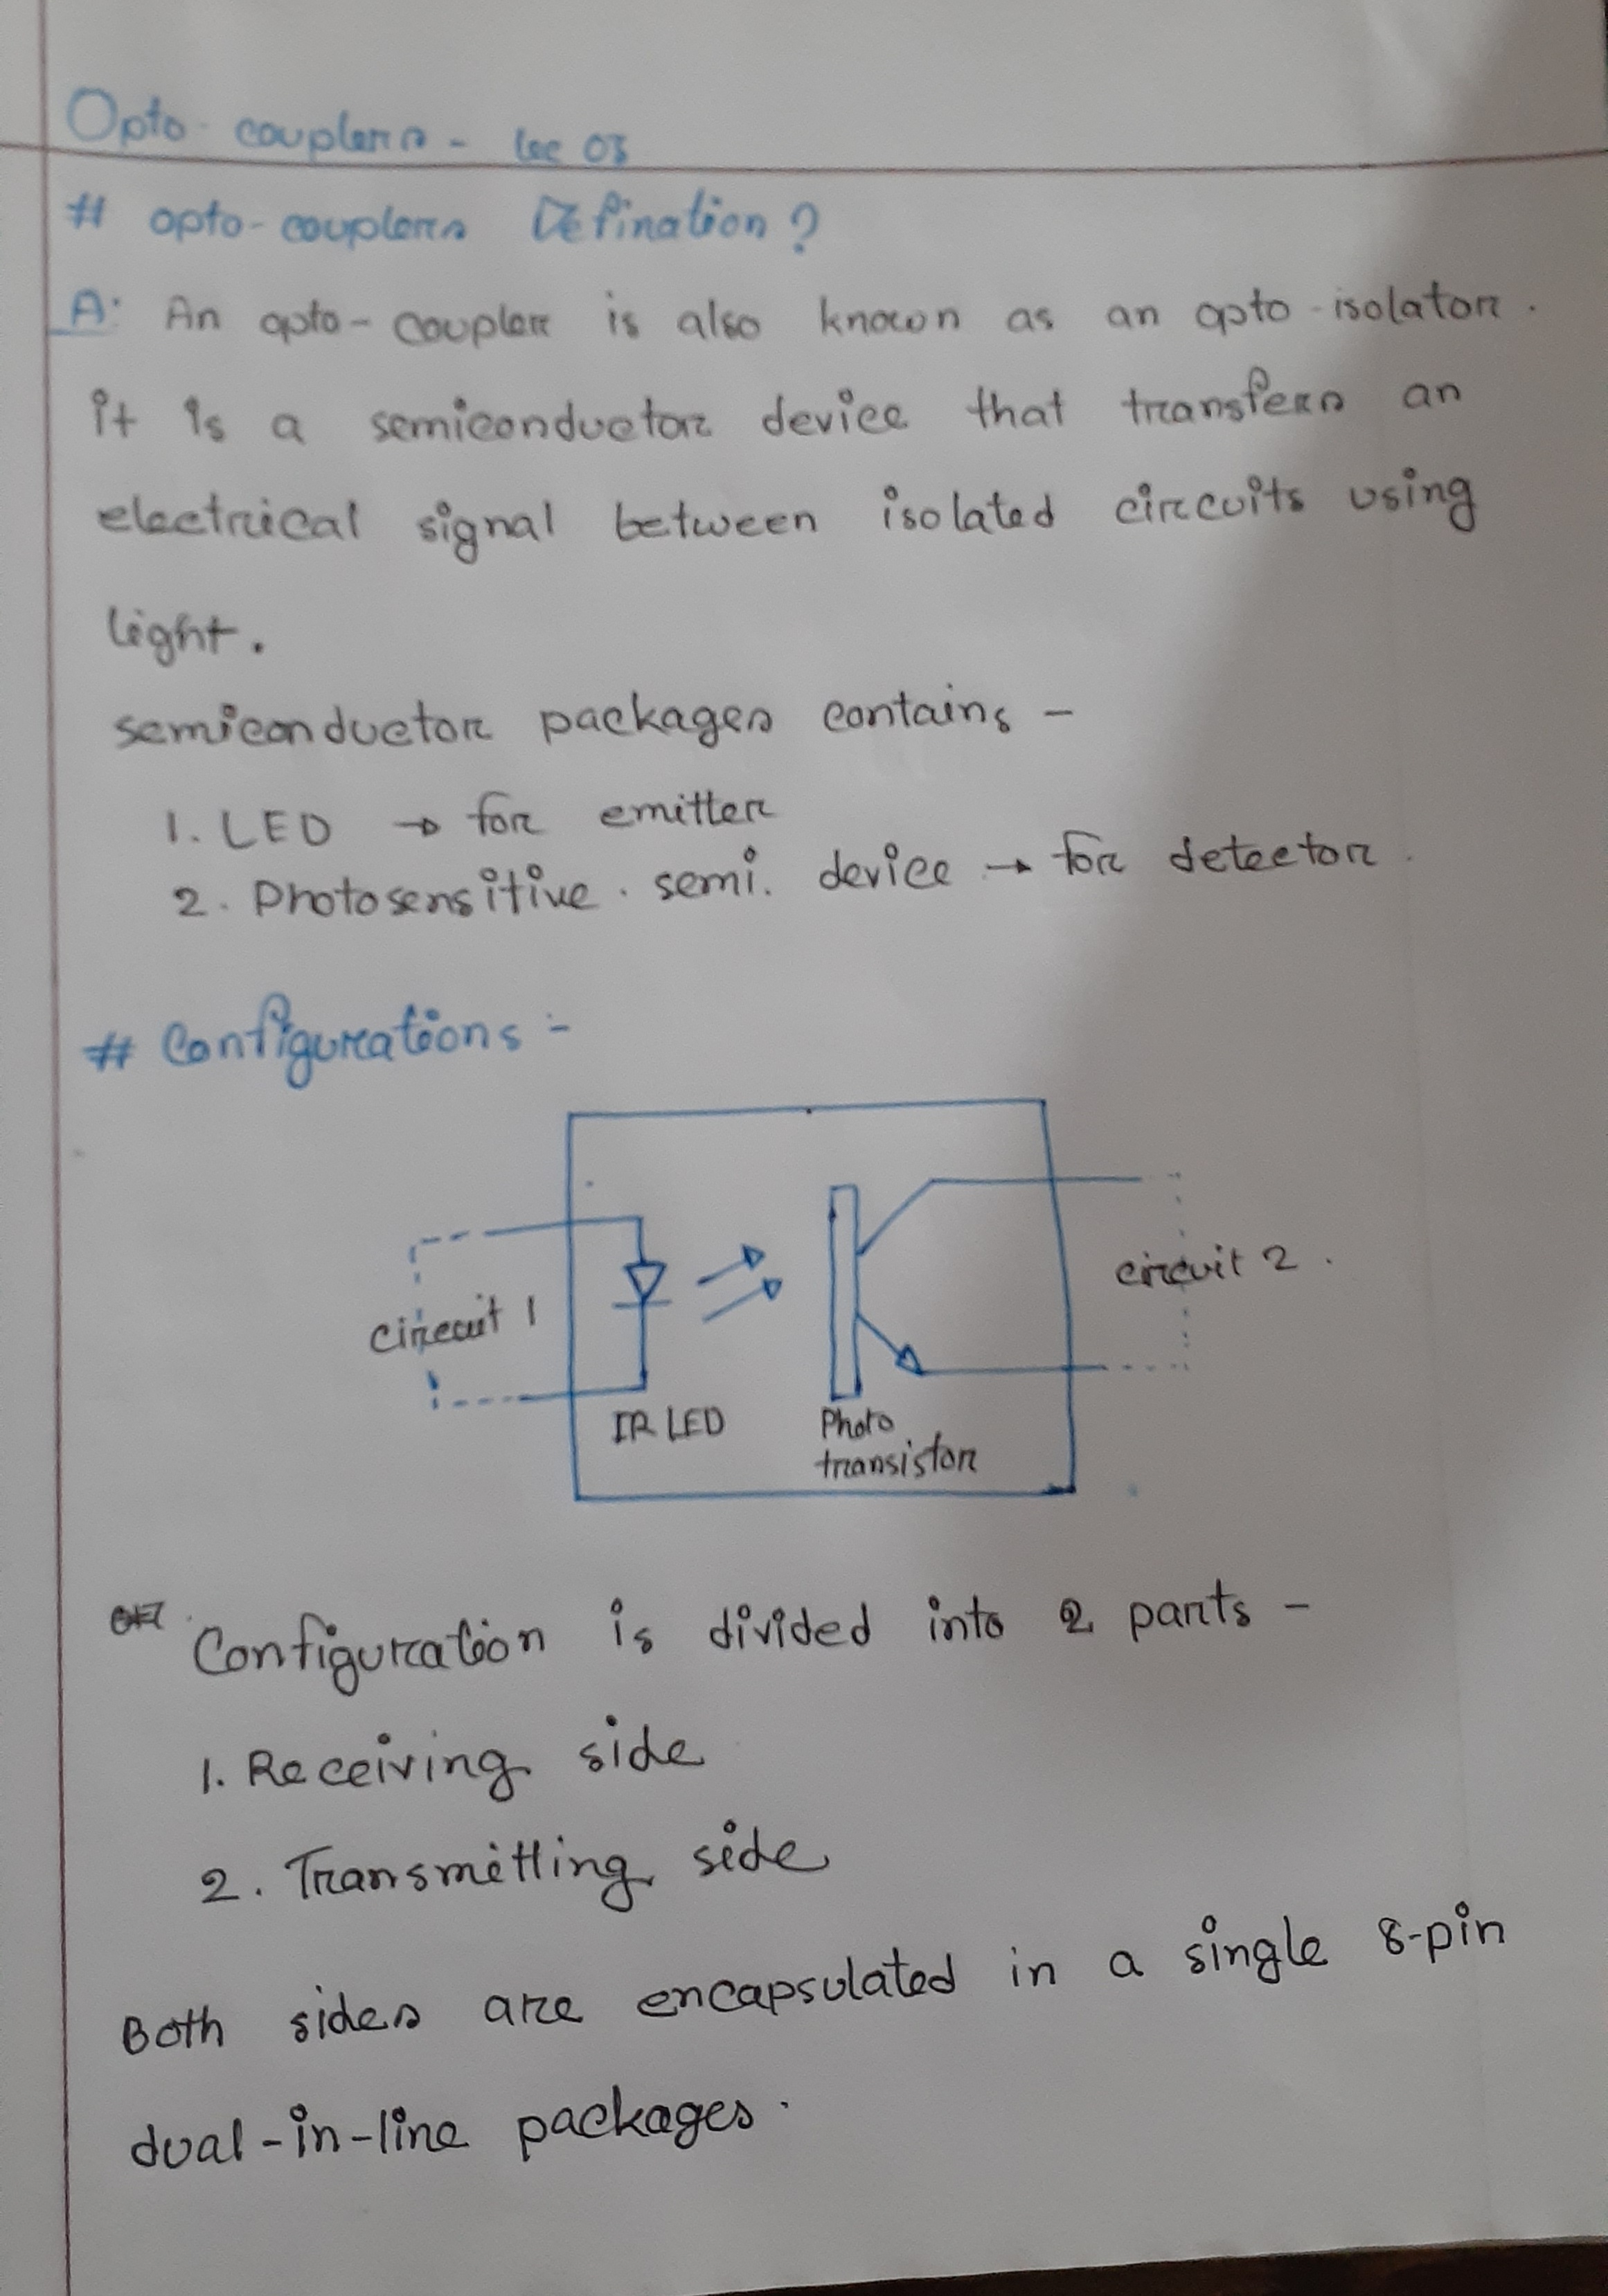 Opto-couplers - Lec 03
# opto-couplers Defination?
A: An opto-coupler is also known as an opto-isolator.
it is a semiconductor device that transfers an
electrical signal between isolated circuits using
light.
semiconductor packages contains -
1. LED → for emitter
2. Photosensitive. semi. device → for detector.
# Configurations :-
circuit 2.
circuit 1
IR LED
Photo
transistor
Configuration is divided into 2 parts -
1. Receiving side
2. Transmitting side
Both sides are encapsulated in a single 8-pin
dual-in-line packages.